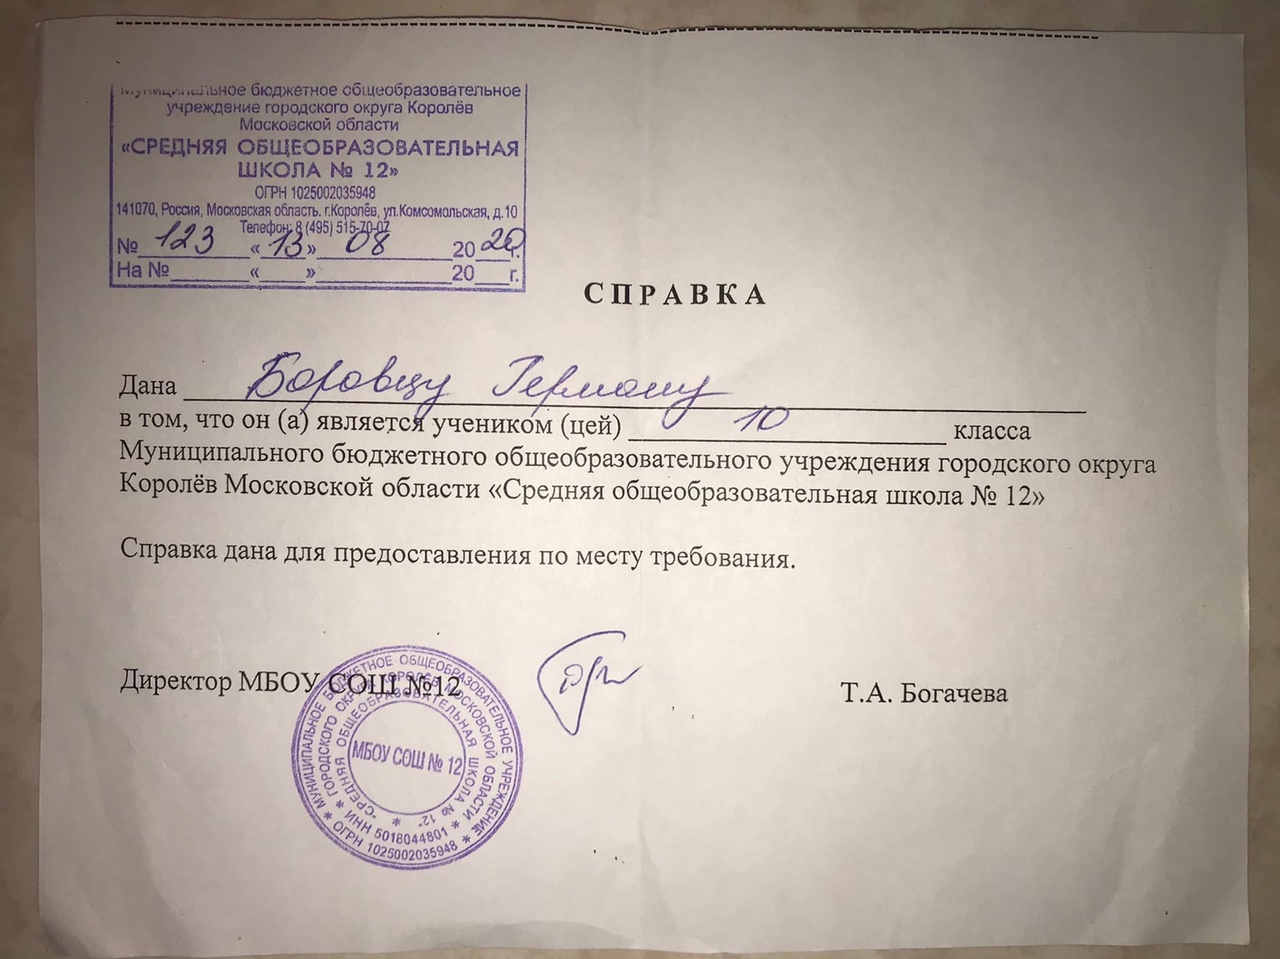 Муниципальное бюджетное общеобразовательное
учреждение городского округа Королёв
Московской области
«СРЕДНЯЯ ОБЩЕОБРАЗОВАТЕЛЬНАЯ
ШКОЛА № 12»
ОГРН 1025002035948
141070, Россия, Московская область. г.Королёв, ул.Комсомольская, д.10
Телефон: 8 (495) 515-70-07
№ 123 «13» 08 2020г.
На №________«____»____________20___г.
СПРАВКА
Дана Боровцу Герману
в том, что он (а) является учеником (цей) 10 класса
Муниципального бюджетного общеобразовательного учреждения городского округа
Королёв Московской области «Средняя общеобразовательная школа № 12»
Справка дана для предоставления по месту требования.
Директор МБОУ СОШ №12 Т.А. Богачева
МУНИЦИПАЛЬНОЕ БЮДЖЕТНОЕ ОБЩЕОБРАЗОВАТЕЛЬНОЕ УЧРЕЖДЕНИЕ
* ОГРН 1025002035948 *
ГОРОДСКОГО ОКРУГА КОРОЛЁВ МОСКОВСКОЙ ОБЛАСТИ
* ИНН 5018044801 *
"СРЕДНЯЯ ОБЩЕОБРАЗОВАТЕЛЬНАЯ ШКОЛА № 12" *
МБОУ СОШ № 12